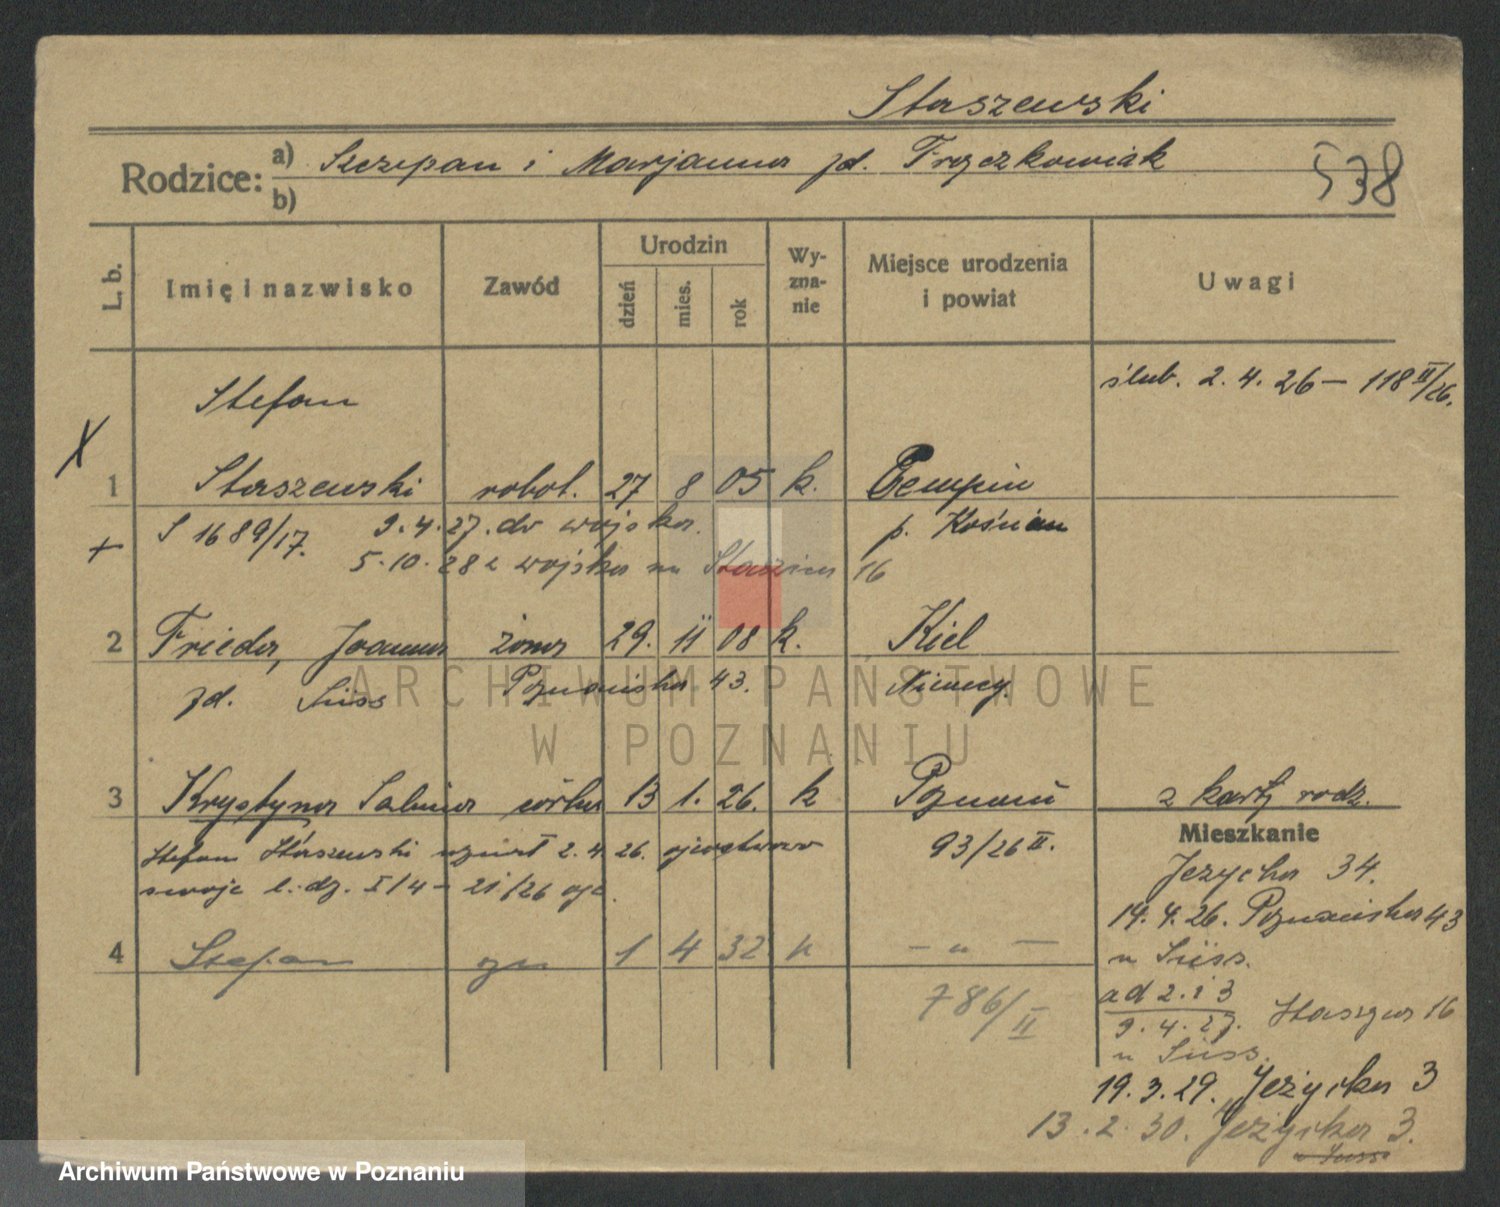 Staszewski
Rodzice: a) Szczepan i Marjanna zd. Frączkowiak
b)
538
L. b. Imię i nazwisko Zawód Urodzin dzień mies. rok Wy- zna- nie Miejsce urodzenia i powiat Uwagi
Stefan ślub. 2. 4. 26 — 118 II/26.
X
1 Staszewski robot. 27 8 05 k. Czempin
S 1689/17. 9.4.27. do wojska. p. Kościan
+ 5.10.28 z wojska na Staszica 16
2 Frieda, Joanna żona 29. 11 08 k. Kiel
zd. Süss Poznańska 43. Niemcy.
3 Krystyna Sabina córka 13 1. 26. k Poznań z karty rodz.
Stefan Staszewski uznał 2.4.26. ojcostwo 93/26 II.
swoje l. dz. I/4 — 21/26
4 Stefan syn 1 4 32 k — " —
786/II
Mieszkanie
Jeżycka 34.
14.4.26. Poznańska 43
u Süss.
ad 2. i 3
9.4.27. Staszyca 16
u Süss.
19.3.29. Jeżycka 3
13.2.30. Jeżycka 3.
u Süss
ARCHIWUM PAŃSTWOWE
W POZNANIU
Archiwum Państwowe w Poznaniu